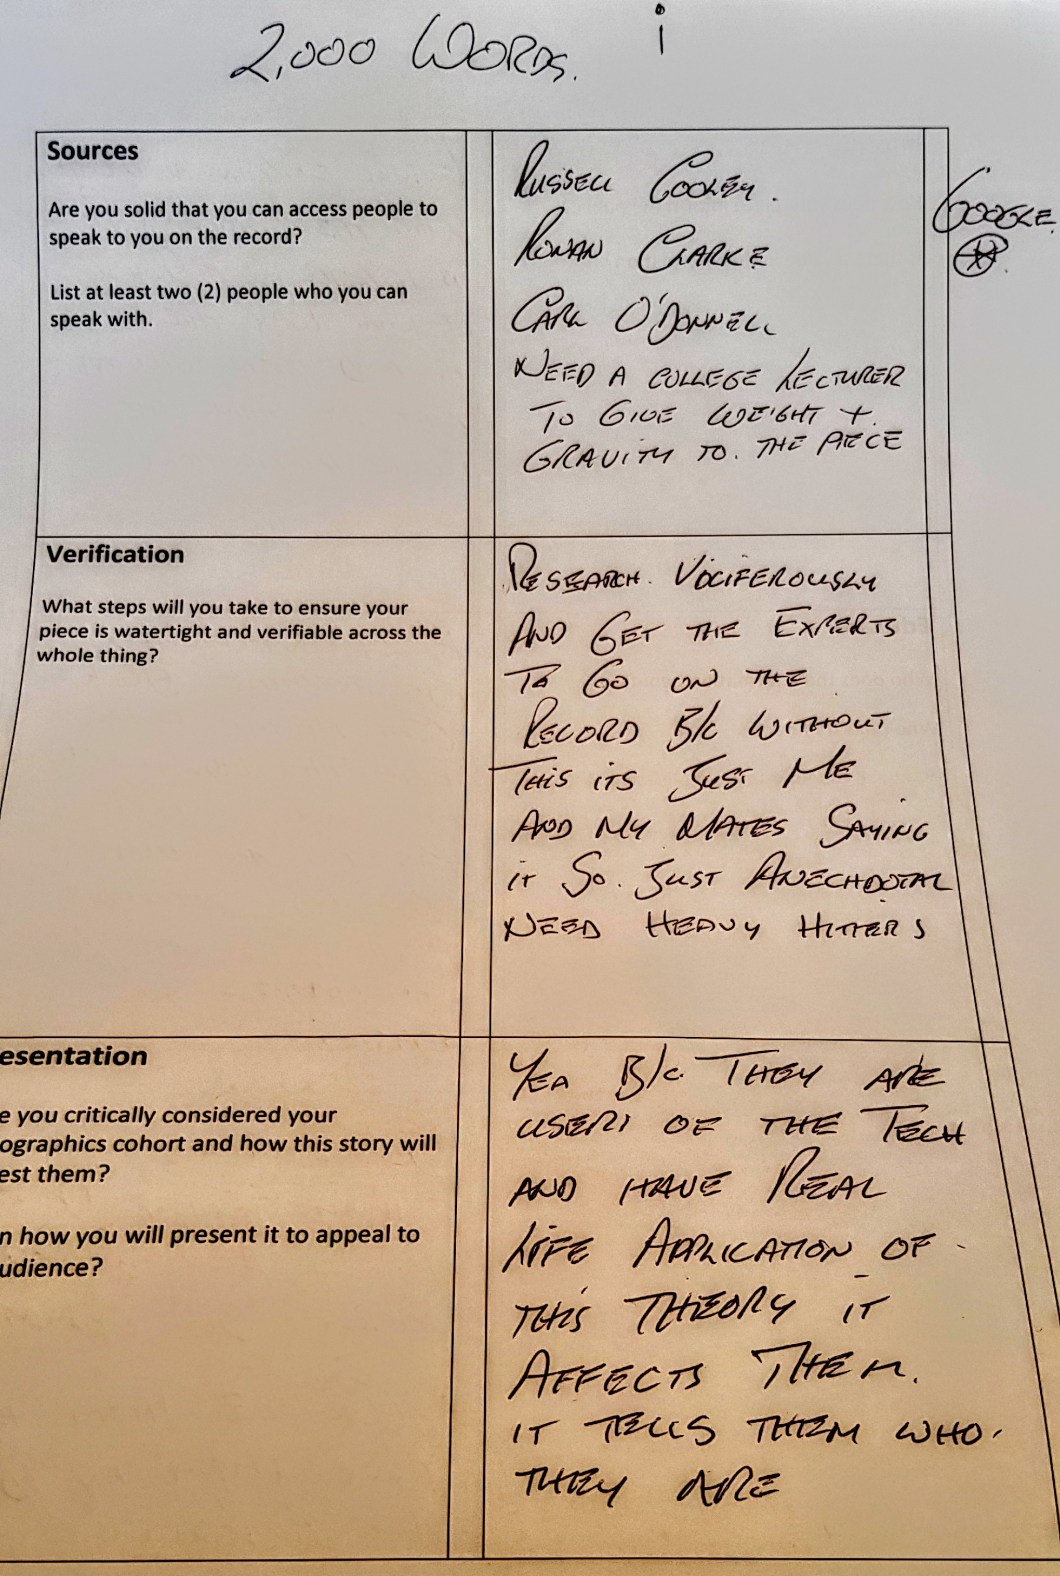 2,000 WORDS.
i
Sources
Are you solid that you can access people to
speak to you on the record?
List at least two (2) people who you can
speak with.
RUSSELL COOLEY.
RONAN CLARKE
CARL O'DONNELL
NEED A COLLEGE LECTURER
TO GIVE WEIGHT +
GRAVITY TO. THE PIECE
GOOGLE
Verification
What steps will you take to ensure your
piece is watertight and verifiable across the
whole thing?
RESEARCH. VOCIFEROUSLY
AND GET THE EXPERTS
TO GO ON THE
RECORD B/C WITHOUT
THIS ITS JUST ME
AND MY MATES SAYING
IT SO. JUST ANECHDOTAL
NEED HEAVY HITTERS
esentation
e you critically considered your
ographics cohort and how this story will
est them?
n how you will present it to appeal to
udience?
YEA B/C. THEY ARE
USERS OF THE TECH
AND HAVE REAL
LIFE APPLICATION OF
THIS THEORY IT
AFFECTS THEM.
IT TELLS THEM WHO
THEY ARE